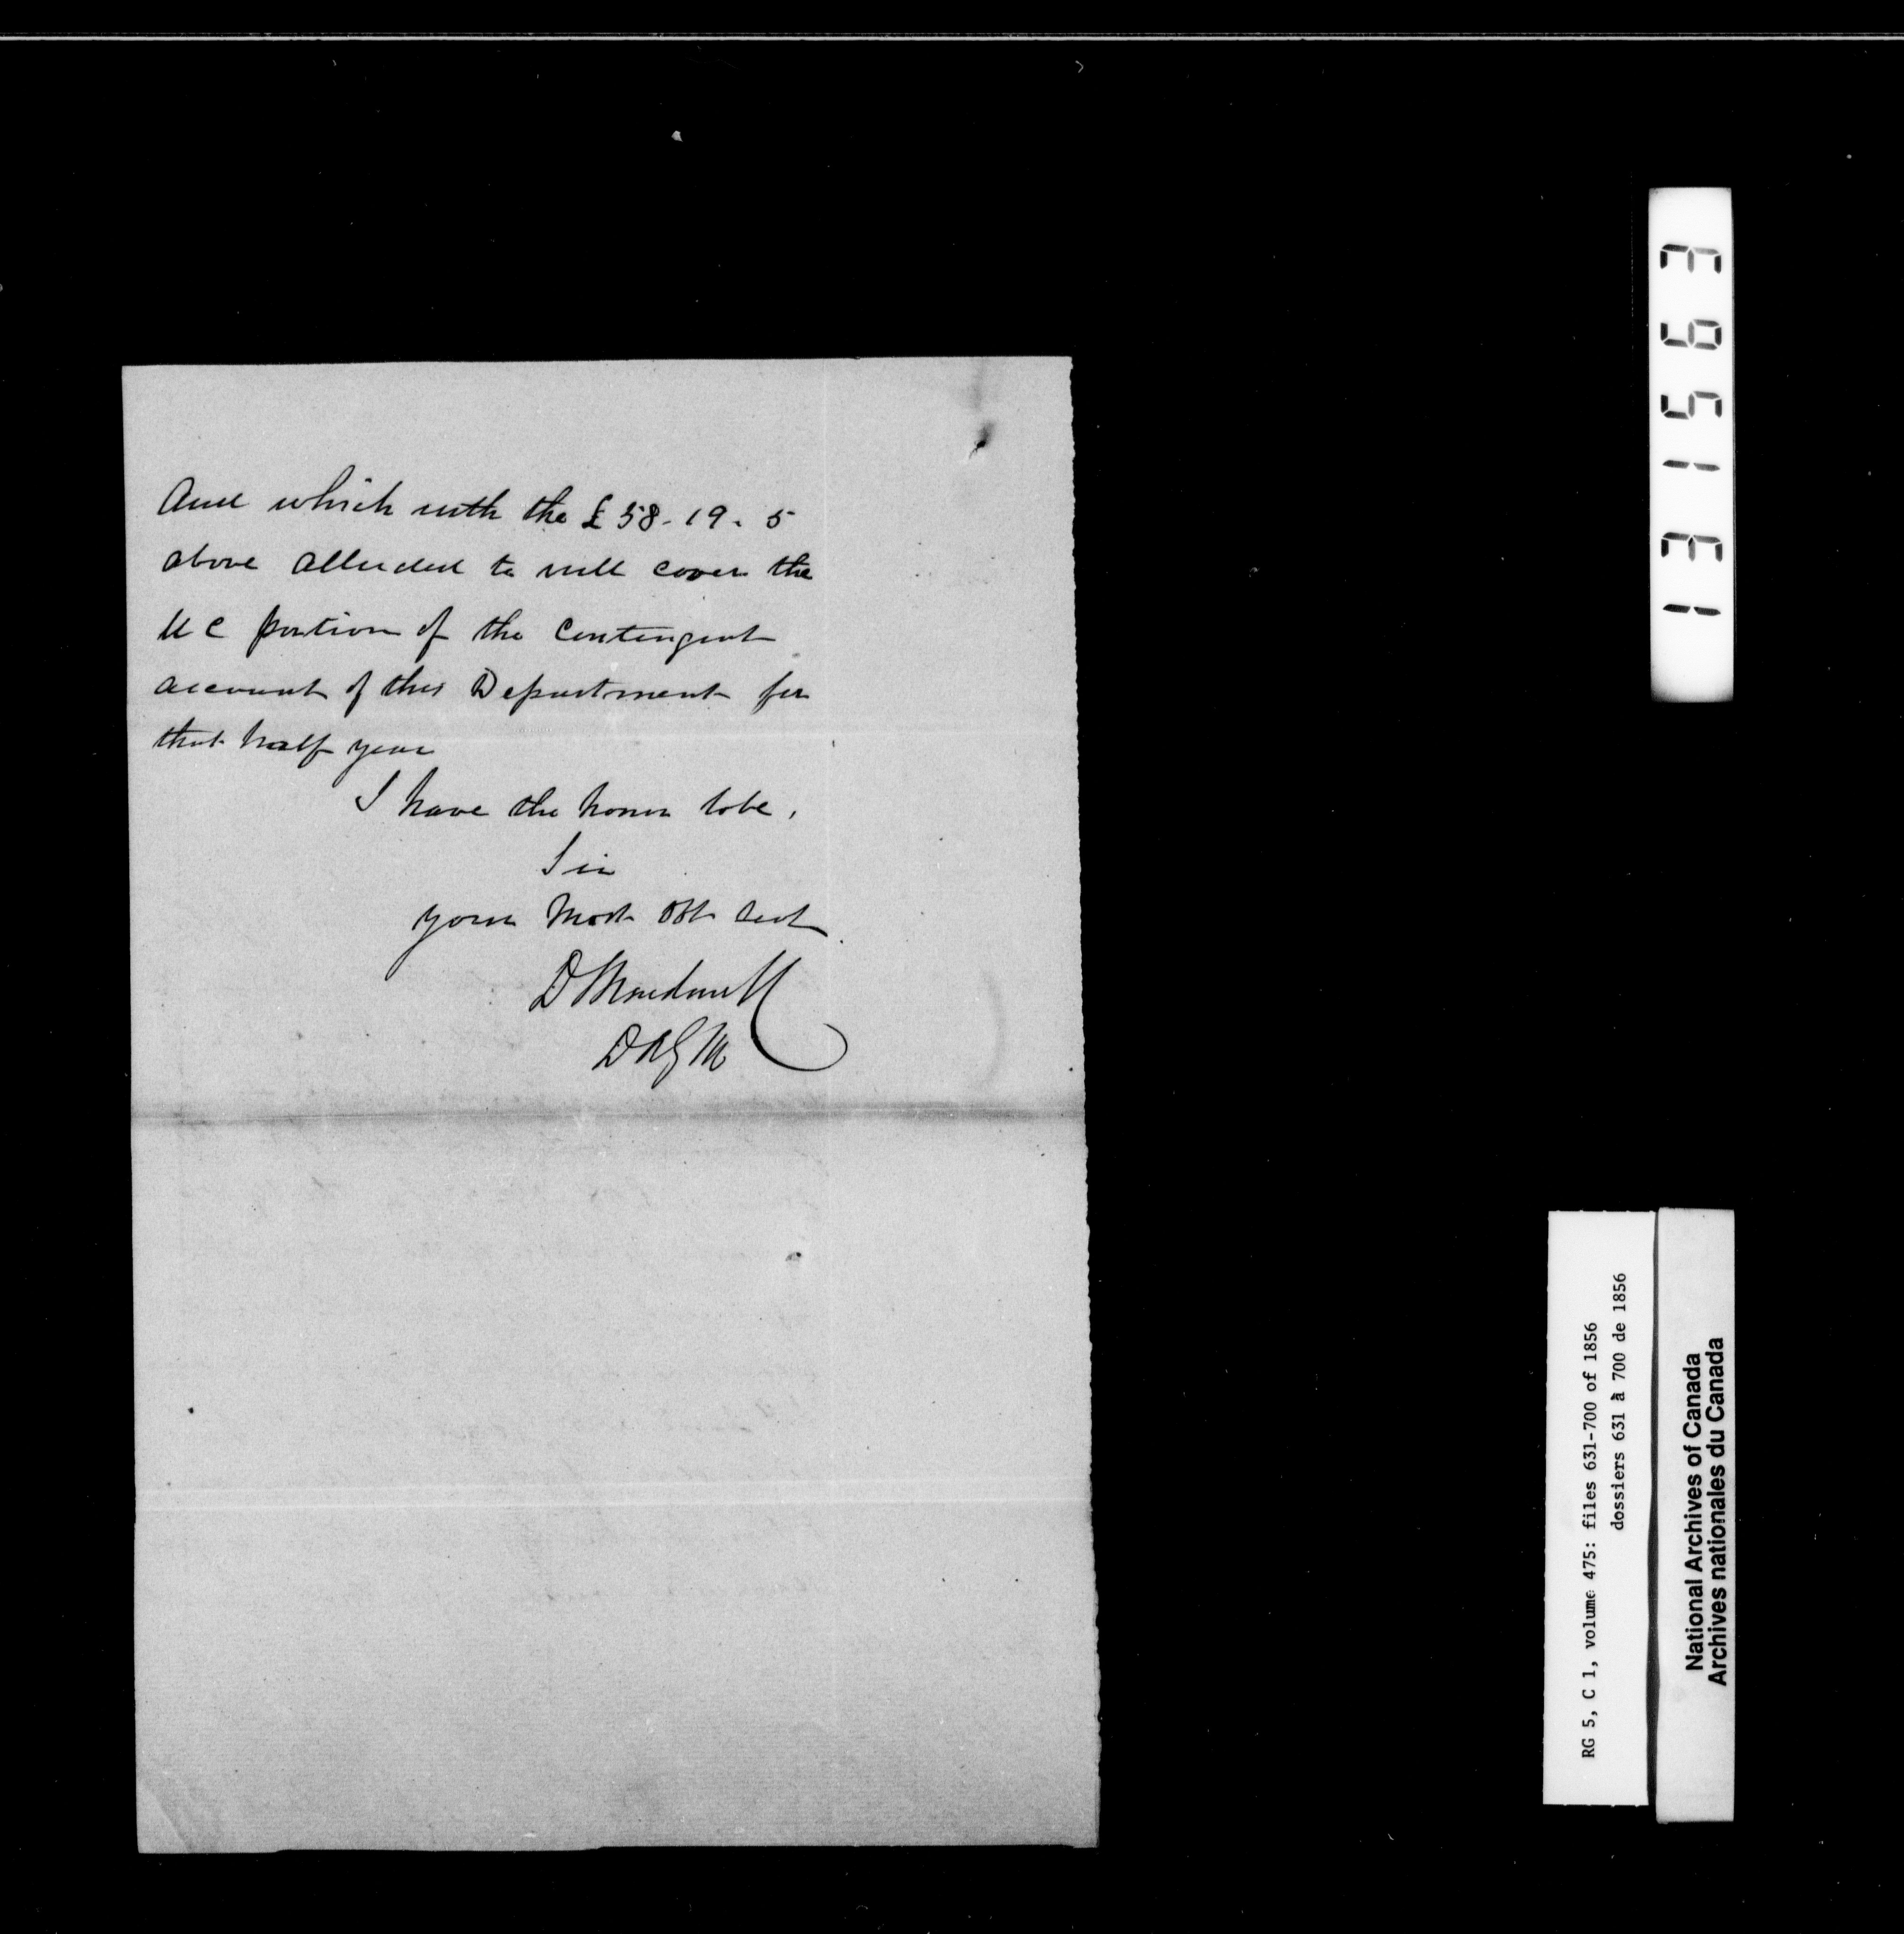 And which with the £58-19-5
above alluded to will cover the
U C portion of the Contingent
account of this Department for
that half year
I have the honor to be,
Sir
your Most Obt Sevt
D Macdonell
D A G M
131563
RG 5, C 1, volume 475: files 631-700 of 1856
dossiers 631 à 700 de 1856
National Archives of Canada
Archives nationales du Canada